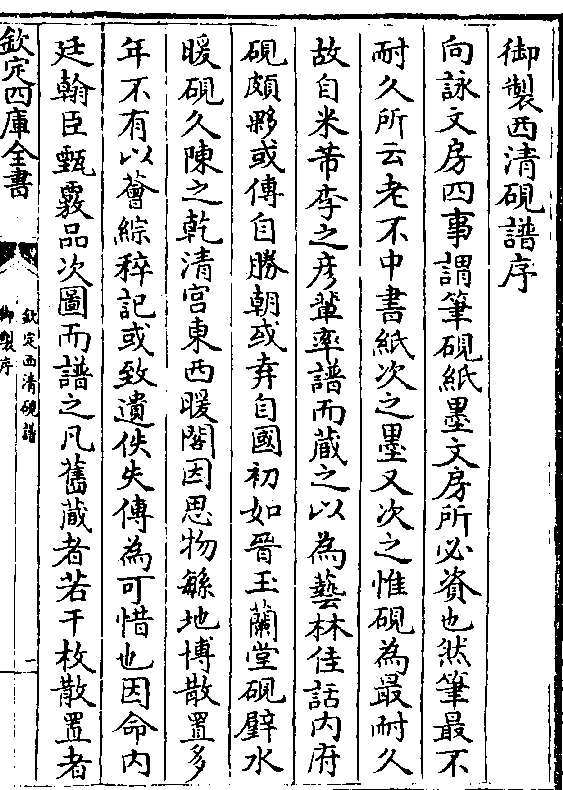 御製西清硯譜序
向詠文房四事謂筆硯紙墨文房所必資也然筆最不
耐久所云老不中書紙次之墨又次之惟硯為最耐久
故自米芾李之彦輩率譜而蔵之以為藝林佳話内府
硯頗夥或傳自勝朝或弆自國初如晉玉蘭堂硯璧水
暖硯久陳之乾清宫東西暖閣因思物緐地博散置多
年不有以薈綜稡記或致遺佚失傳為可惜也因命内
廷翰臣甄覈品次圖而譜之凡舊蔵者若干枚散置者
欽定四庫全書
欽定西清硯譜
御製序
一